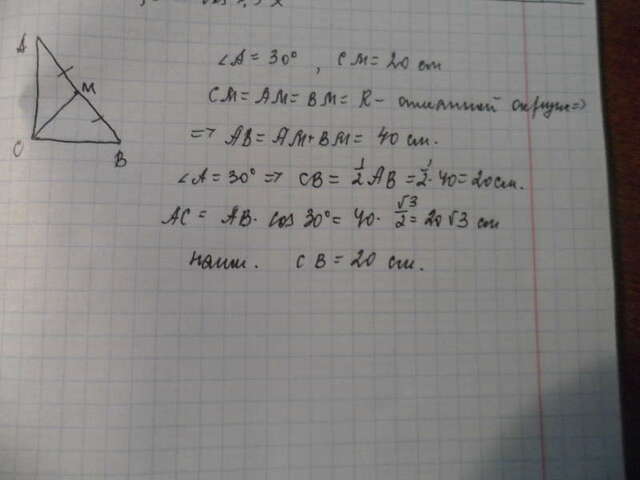 A
M
C
B
∠A = 30° , CM = 20 см
CM = AM = BM = R - описанной окружн =>
=> AB = AM + BM = 40 см.
∠A = 30° => CB = 1/2 AB = 1/2 · 40 = 20 см.
AC = AB · cos 30° = 40 · √3/2 = 20√3 см
наим. CB = 20 см.